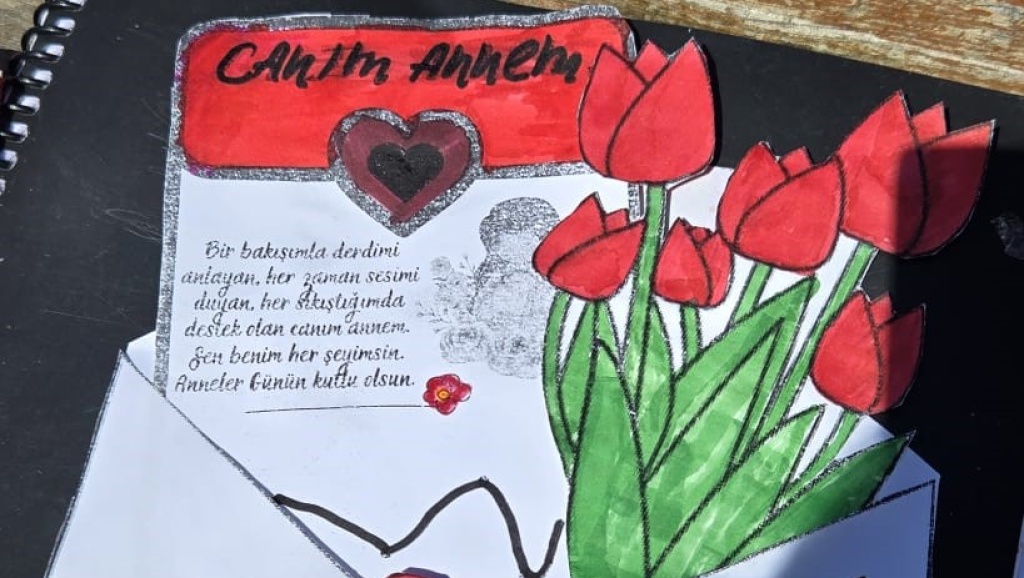 CANIM ANNEM
Bir bakışımla derdimi
anlayan, her zaman sesimi
duyan, her sıkıştığımda
destek olan canım annem.
Sen benim her şeyimsin.
Anneler Günün kutlu olsun.